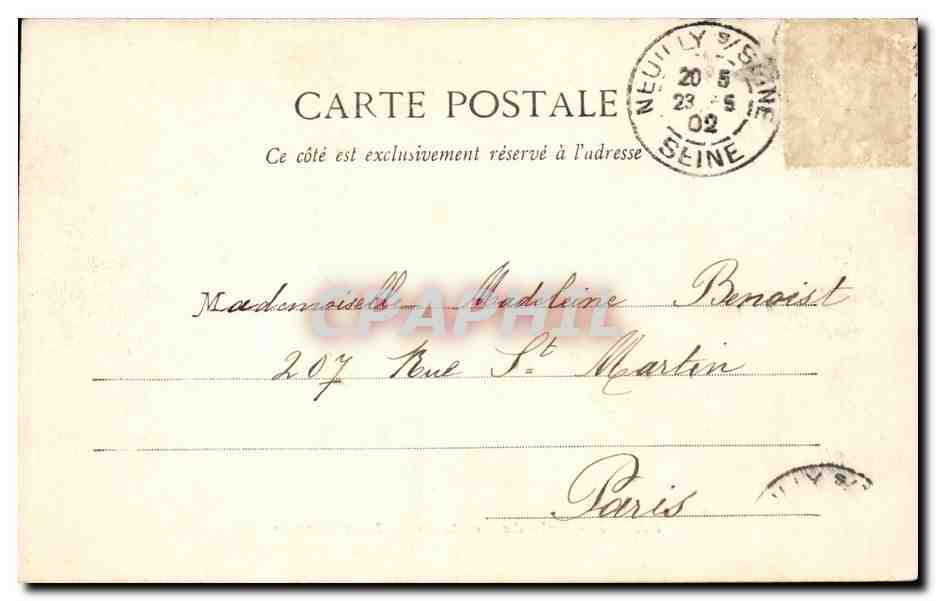 CARTE POSTALE
Ce côté est exclusivement réservé à l'adresse
NEUILLY S/ SEINE
20 5
23 5
02
SEINE
Mademoiselle Madeleine Benoist
207 Rue St Martin
Paris
CPAPHIL